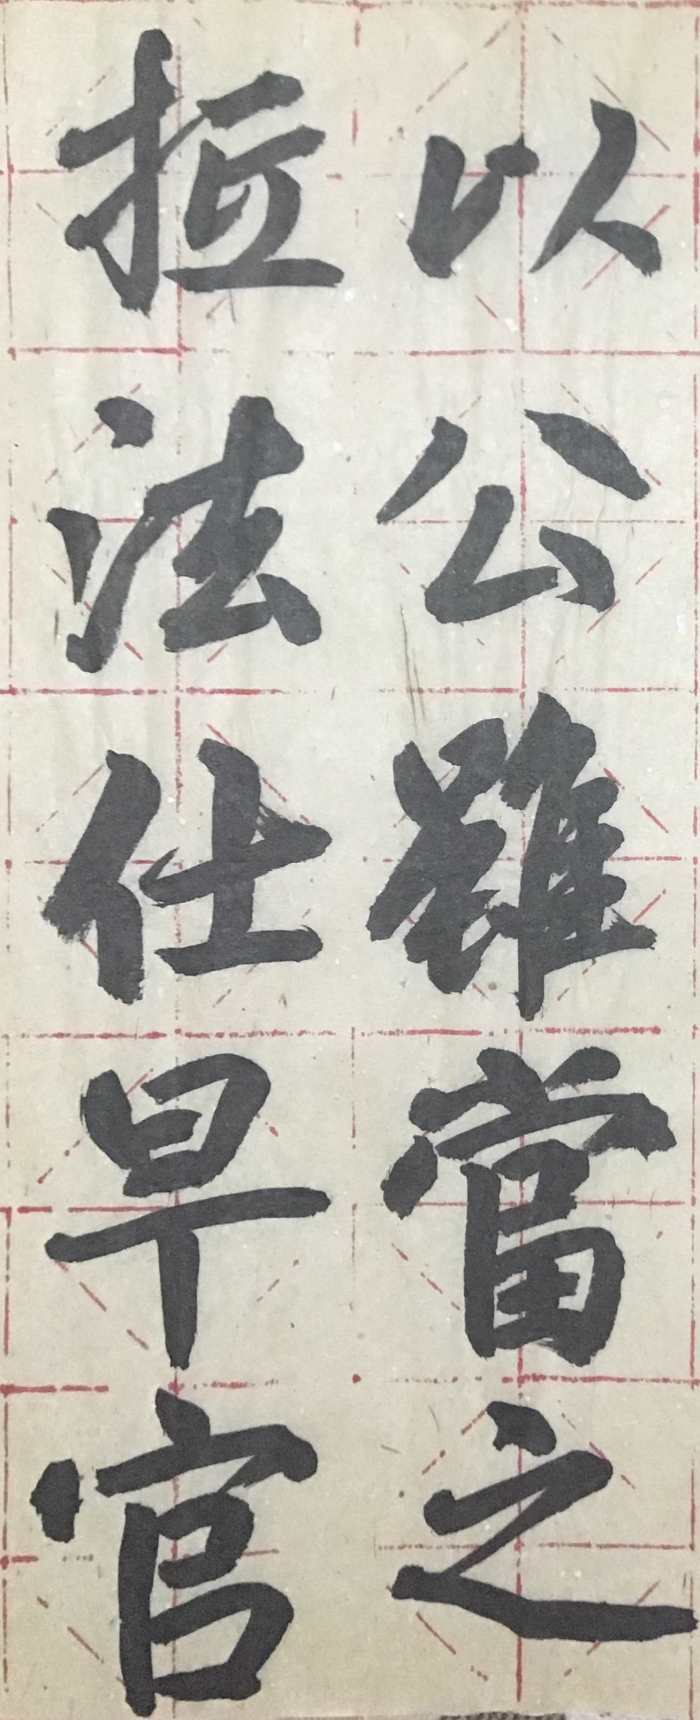 以公雖當之
法仕早官